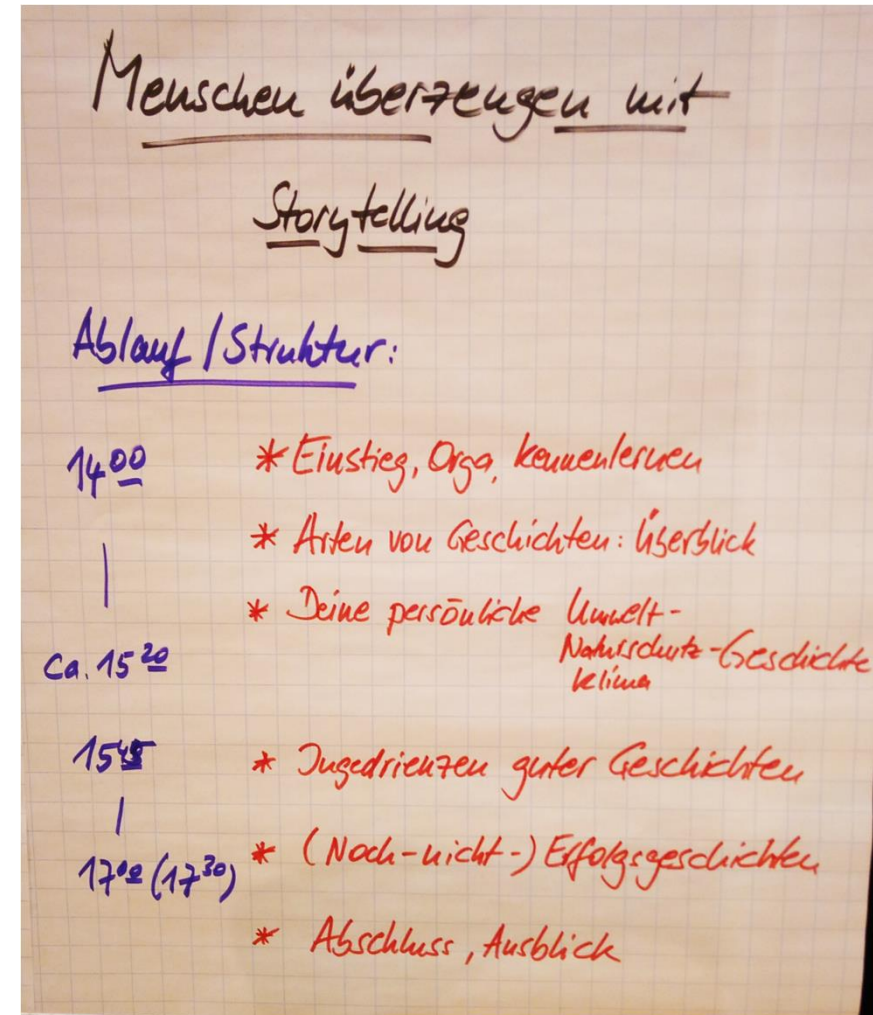 Menschen überzeugen mit
Storytelling
Ablauf / Struktur:
14⁰⁰ * Einstieg, Orga, kennenlernen
* Arten von Geschichten: Überblick
* Deine persönliche Umwelt-
Naturschutz-Geschichte
Ca. 15²⁰ Klima
15⁴⁵ * Ingedrienzen guter Geschichten
* (Noch-nicht-) Erfolgsgeschichten
17⁰⁰ (17³⁰)
* Abschluss, Ausblick